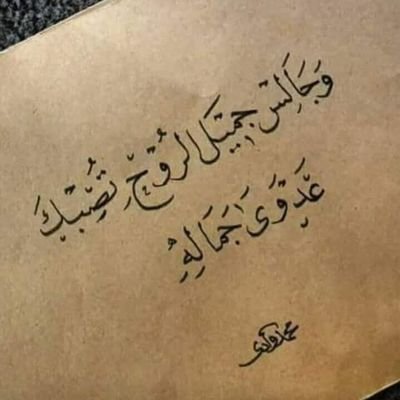 وَجَالِسْ جَمِيْلَ الرُوْحِ تُصِبْكَ
عَدْوَى جَمَالِهِ